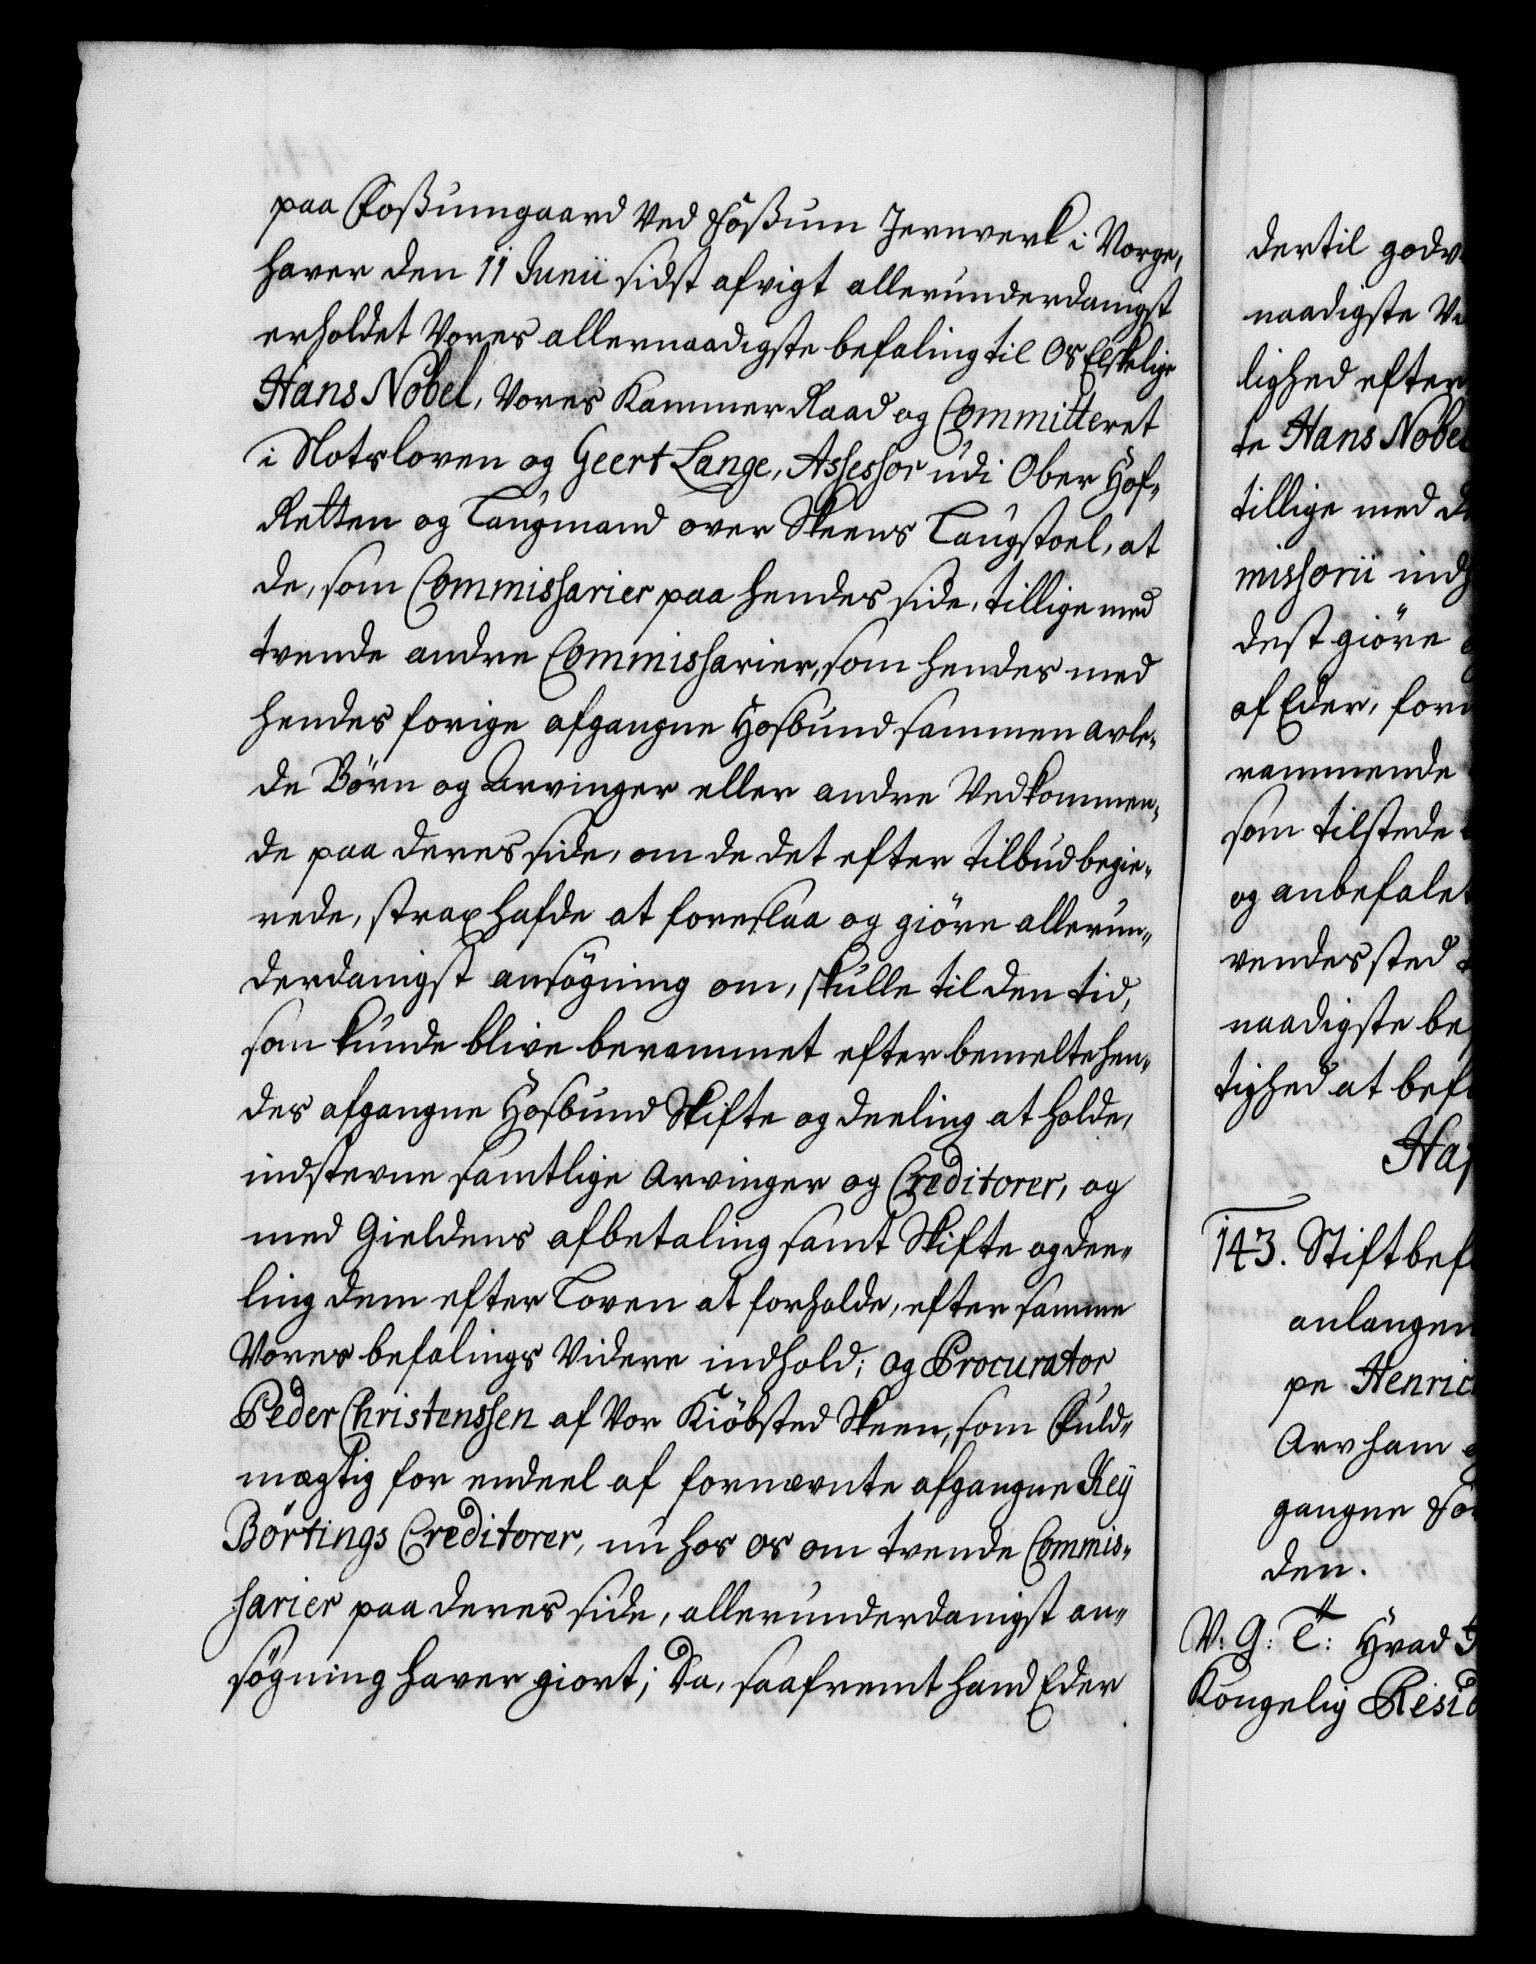 paa Foßumgaard ved Foßum Jernverk i Norge,
haver den 11 Junii sidst afvigt allerunderdanigst
erholdet Vores allernaadigste befaling til Os Elskelige
Hans Nobel, Vores Kammer Raad og Committeret
i Slotsloven og Geert Lange, Assessor udi Ober Hof-
Retten og Laugmand over Skeens Laugstoel, at
de, som Commissarier paa hendes side, tillige med
tvende andre Commissarier, som hendes med
hendes forige afgangne Hosbund sammen avle-
de Börn og Arvinger eller andre Vedkommen-
de paa deres side, om de det efter tilbud begie-
rede, strax hafde at foreslaa og giöre allerun-
derdanigst ansögning om, skulle til den tid,
som kunde blive berammet efter bemelte hen-
des afgangne Hosbund Skifte og deeling at holde,
indstevne samtlige Arvinger og Creditorer, og
med Gieldens afbetaling samt Skifte og dee-
ling dem efter Loven at forholde, efter samme
Vores befalings Videre indhold; og Procurator
Peder Christenssen af Vor Kiöbsted Skeen, som Fuld-
mægtig for endeel af fornævnte afgangne Key
Börtings Creditorer, nu hos os om tvende Commis-
sarier paa deres side, allerunderdanigst an-
sögning haver giort; Da, saafremt hand Eder
dertil godv
naadigste Vi
lighed efter
te Hans Nobel
tillige med d
missorii indh
dest giöre
af Eder, for
rammende
som tilstede
og anbefalet
vendes sted
naadigste be
tighed at bef
Haf
143. Stiftbef
anlangen
pe Henric
Arv ham
gangne So
den.
V: G: T: Hvad
Kongelig Resid